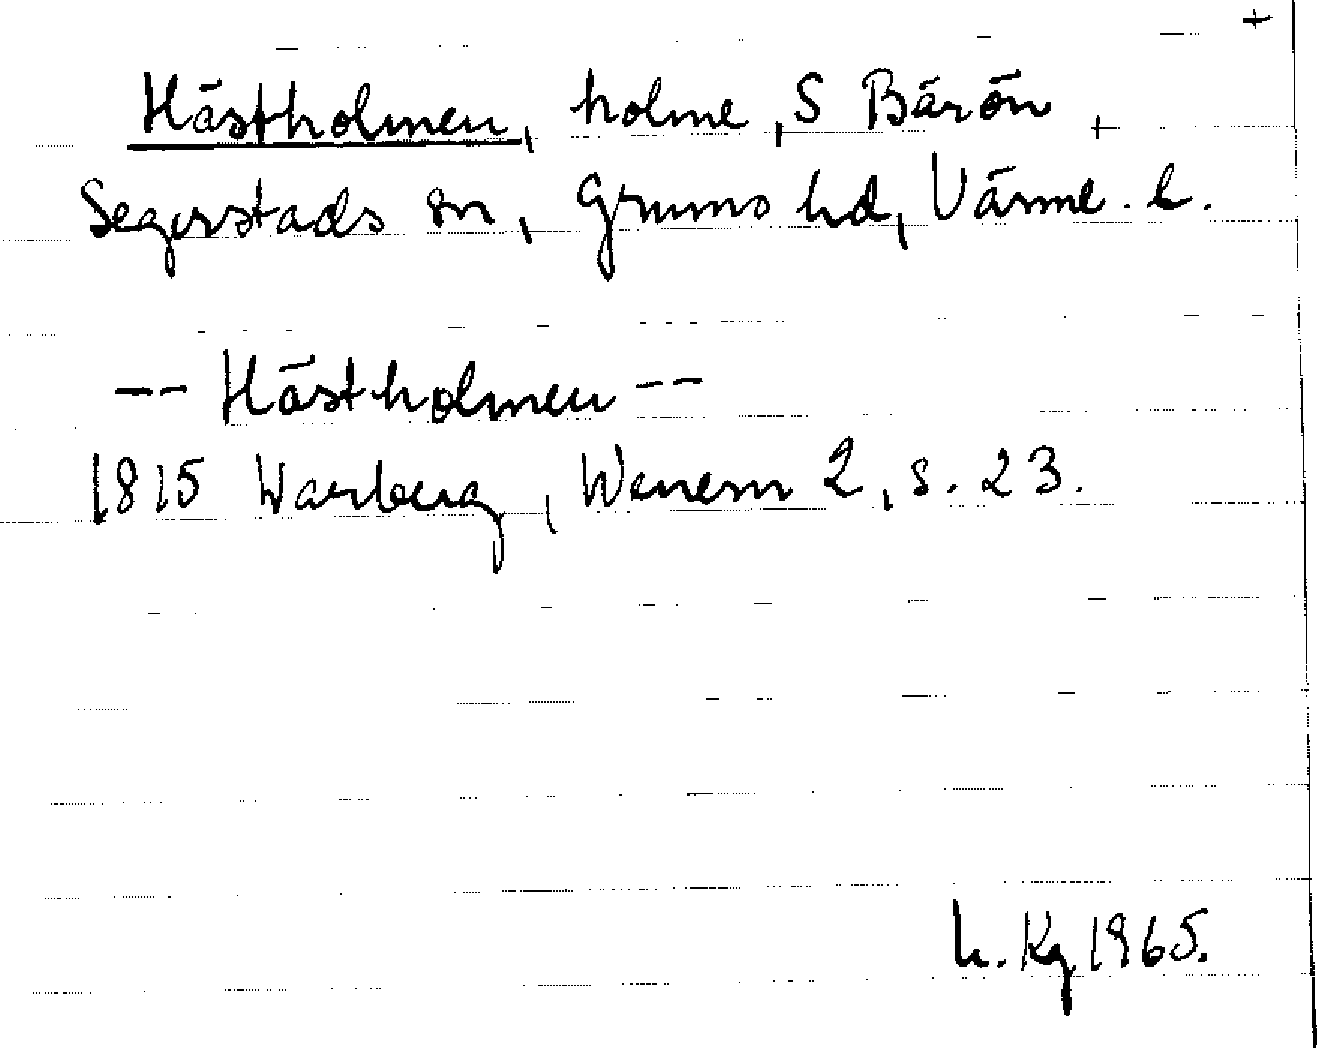 +
Hästholmen, holme, S Bärön,
Segerstads sn, Grums hd, Värml. l.
-- Hästholmen --
1815 Warberg, Wenern 2, s. 23.
h. Kg 1965.